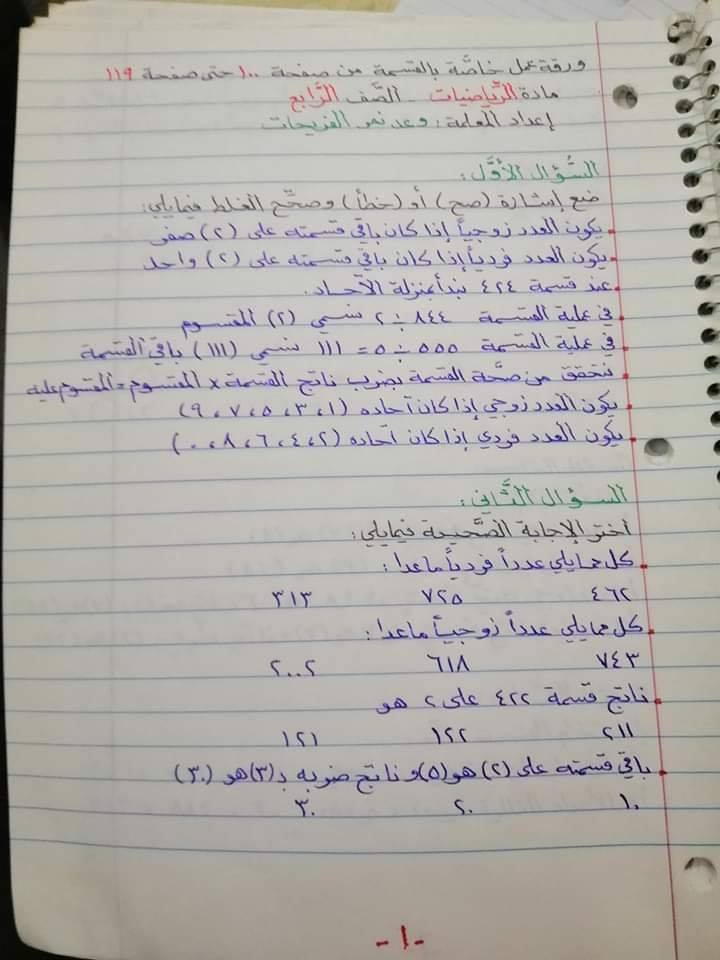 ورقة عمل خاصَّة بالقسمة من صفحة ١٠٠ حتى صفحة ١١٩
مادة الرِّياضيات - الصَّف الرَّابع
إعداد المعلمة: وعد نمر الفريحات
السُّؤال الأوَّل:
ضع إشارة (صح) أو (خطأ) وصحِّح الغلط فيمايلي:
يكون العدد زوجياً إذا كان باقي قسمته على (٢) صفر
يكون العدد فردياً إذا كان باقي قسمته على (٢) واحد
عند قسمة ٤٢٤ نبدأ بمنزلة الآحاد.
في عملية القسمة ٨٤٤ ÷ ٢ نسمي (٢) المقسوم
في عملية القسمة ٥٥٥ ÷ ٥ = ١١١ نسمي (١١١) باقي القسمة
نتحقق من صحَّة القسمة بضرب ناتج القسمة × المقسوم = المقسوم عليه
يكون العدد زوجي إذا كان آحاده (١، ٣، ٥، ٧، ٩)
يكون العدد فردي إذا كان آحاده (٢، ٤، ٦، ٨، ٠)
السؤال الثَّاني:
أختر الإجابة الصَّحيحة فيمايلي:
كل ممايلي عدداً فردياً ماعدا:
٤٦٢ ٧٢٥ ٣١٣
كل ممايلي عدداً زوجياً ماعدا:
٧٤٣ ٦١٨ ٢٠٠٢
ناتج قسمة ٤٢٢ على ٢ هو
٢١١ ١٢٢ ١٢١
باقي قسمته على (٢) هو (٥) و ناتج ضربه بـ (٣) هو (٣٠)
١٠ ٢٠ ٣٠
-١-